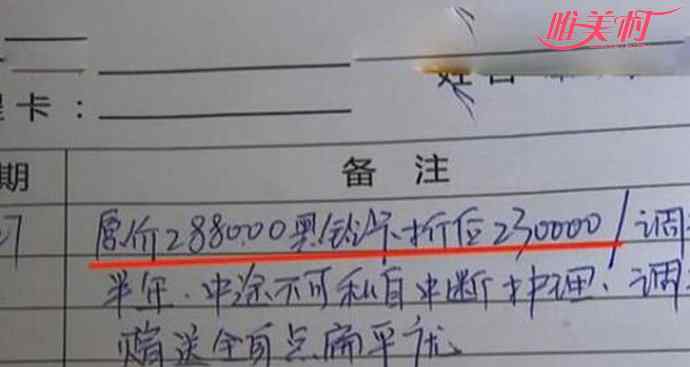 唯美村
卡：
期 备注
7 原价288000奥铃浮.折位230000/调
半年.中途不可私自中断护理.调
赠送全面点扁平疣